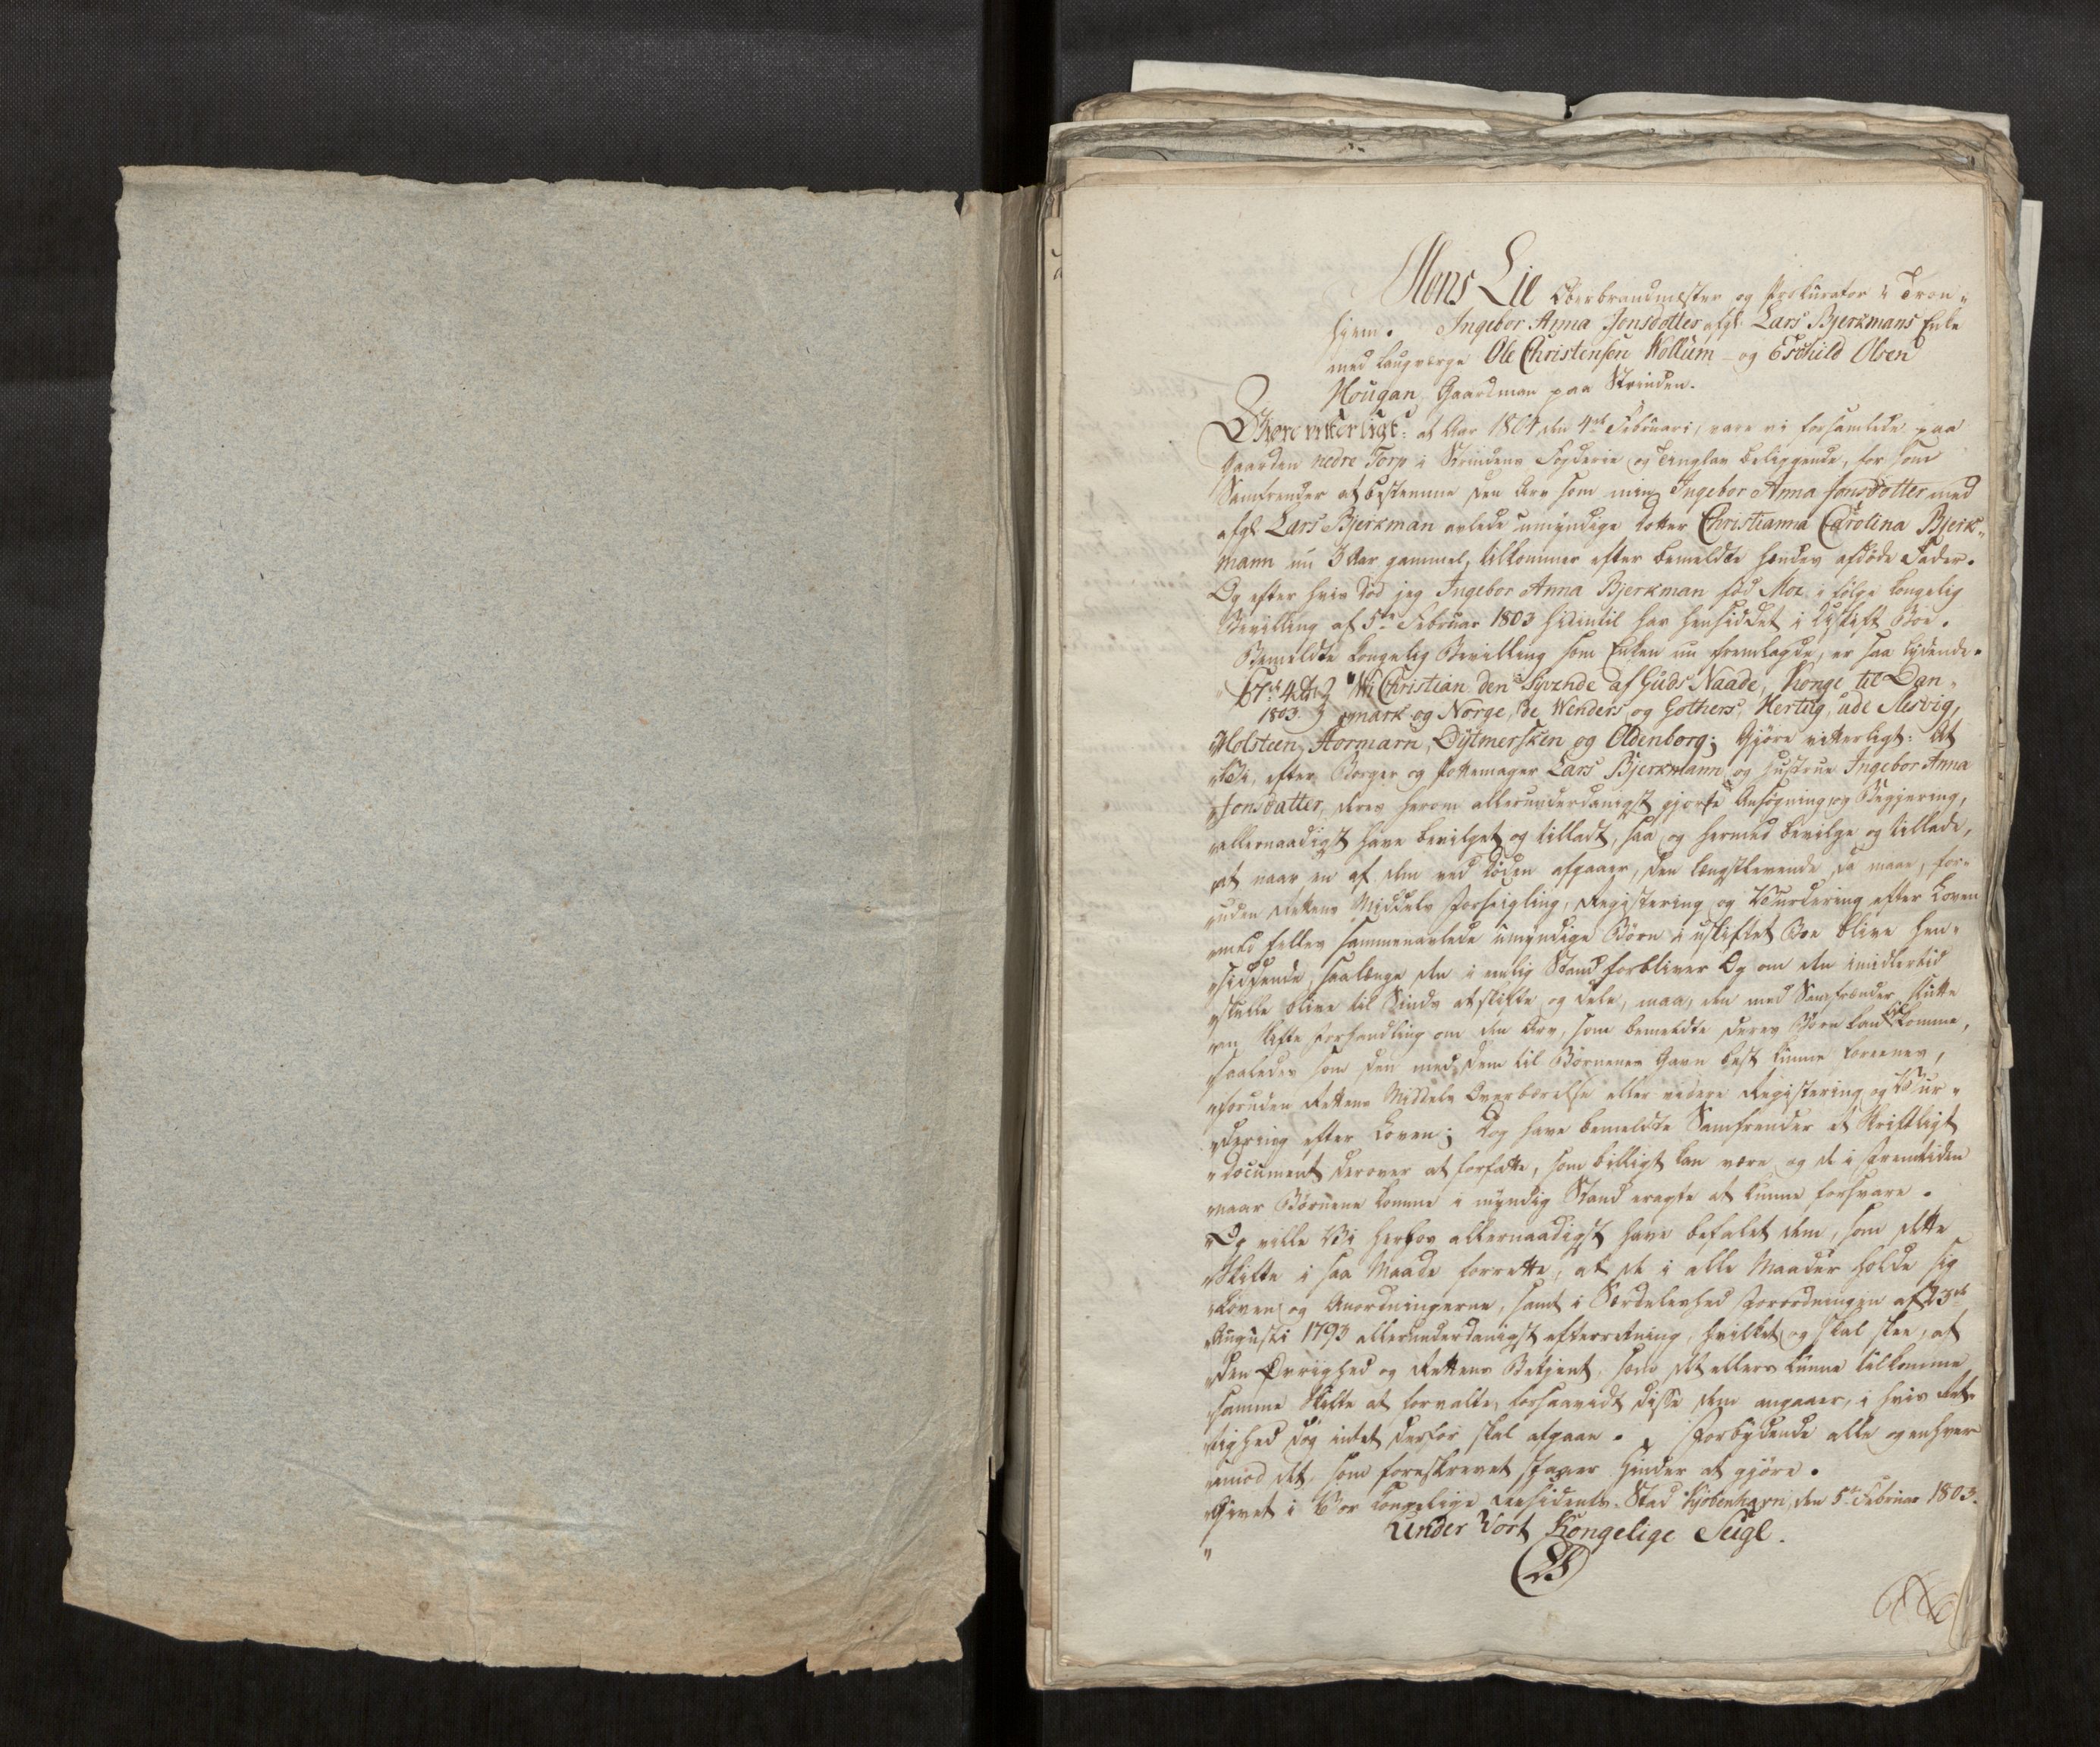 Mons Lie Overbrandmester og Prokurator i Tron„
hiem. Ingebor Anna Jonsdotter afgl. Lars Bjerkmans Enke
med Laugværge Ole Christensen Wollum og Eschild Olsen
Hougan, Gaardman paa Strinden.
Giøre vitterligt: at Aar 1804 den 4de Februari, vare vi forsamlede paa
Gaarden nedre Torp i Strindens Fogderie og Tinglav beliggende, for som
Samfrender at bestemme den Arv som min Ingebor Anna Jonsdotter med
afgl. Lars Bjerkman avlede umyndige Dotter Christianna Carolina Bjerk„
mann nu 3 Aar gammel, tilkommer efter bemeldte hendes afdøde Fader.
Og efter hvis Død jeg Ingebor Anna Bjerkman fød Moe i følge Kongelig
Bevilling af 5te Februar 1803 hidintil har hensiddet i Uskift Boe.
Bemeldte Kongelig Bevilling som Enken nu fremlagde, er saa lydende.
Wi Christian den Syvende af Guds Naade, Konge til Dan„
1803. „mark og Norge, de Wenders og Gothers, Hertug, ude Slesvig,
„Holsteen, Stormarn, Dytmersken og Oldenborg; Gjøre vitterligt: At
„Vi, efter Borger og Pottemager Lars Bjerkmann og Hustrue Ingebor Anna
„Jonsdatter, deres herom allerunderdanigst gjorte Ansøgning og Begjering,
„allernaadigst have bevilget og tilladt, saa og hermed bevilge og tillade,
„at naar en af dem ved Døden afgaaer, den længstlevende da maae, for„
„uden Rettens Middels Forseigling, Registering og Vurdering efter Loven
„med felles sammenavlede umyndige Børn i uskiftet Boe blive hen„
„siddende, saalænge den i enlig Stand forbliver Og om den imidlertid
„skulle blive til Sinds at skifte og dele, maa, den med Samfrender slutte
„en Skifte Forhandling om den Arv, som bemeldte deres Børn kan tilkomme,
„saaledes som den med dem til Børnenes Gavn best kunne foreenes,
„foruden Rettens Middels Overværelse eller videre Registering og Vur„
„dering efter Loven; Dog have bemeldte Samfrender et Skriftligt
„Document derover at forfatte, som billigt kan være og de i Fremtiden
„naar Børnene komme i myndig Stand eragte at kunne forsvare.
„Og ville Vi herhos allernaadigst have befalet dem, som dette
„Skifte i saa Maade forrette, at de i alle Maader holde sig
„Loven og Anordningerne, samt i Særdeleshed Forordningen af 23de
„Augusti 1793 allerunderdanigst efterretning, hvilket og skal skee, af
„den Øvrighed og Rettens Betjent, som det ellers kunne tilkomme
„samme Skifte at forvalte, forsaavidt disse dem angaaer, i hvis Ret„
„tighed dog intet derfor skal afgaae. Forbydende alle og enhver
„imod det, som foreskrevet staaer Hinder at gjøre.
„Givet i Vor Kongelige Residents-Stad Kjøbenhavn, den 5te Februar 1803.
Under Vort Kongelige Seigl.
„ LS